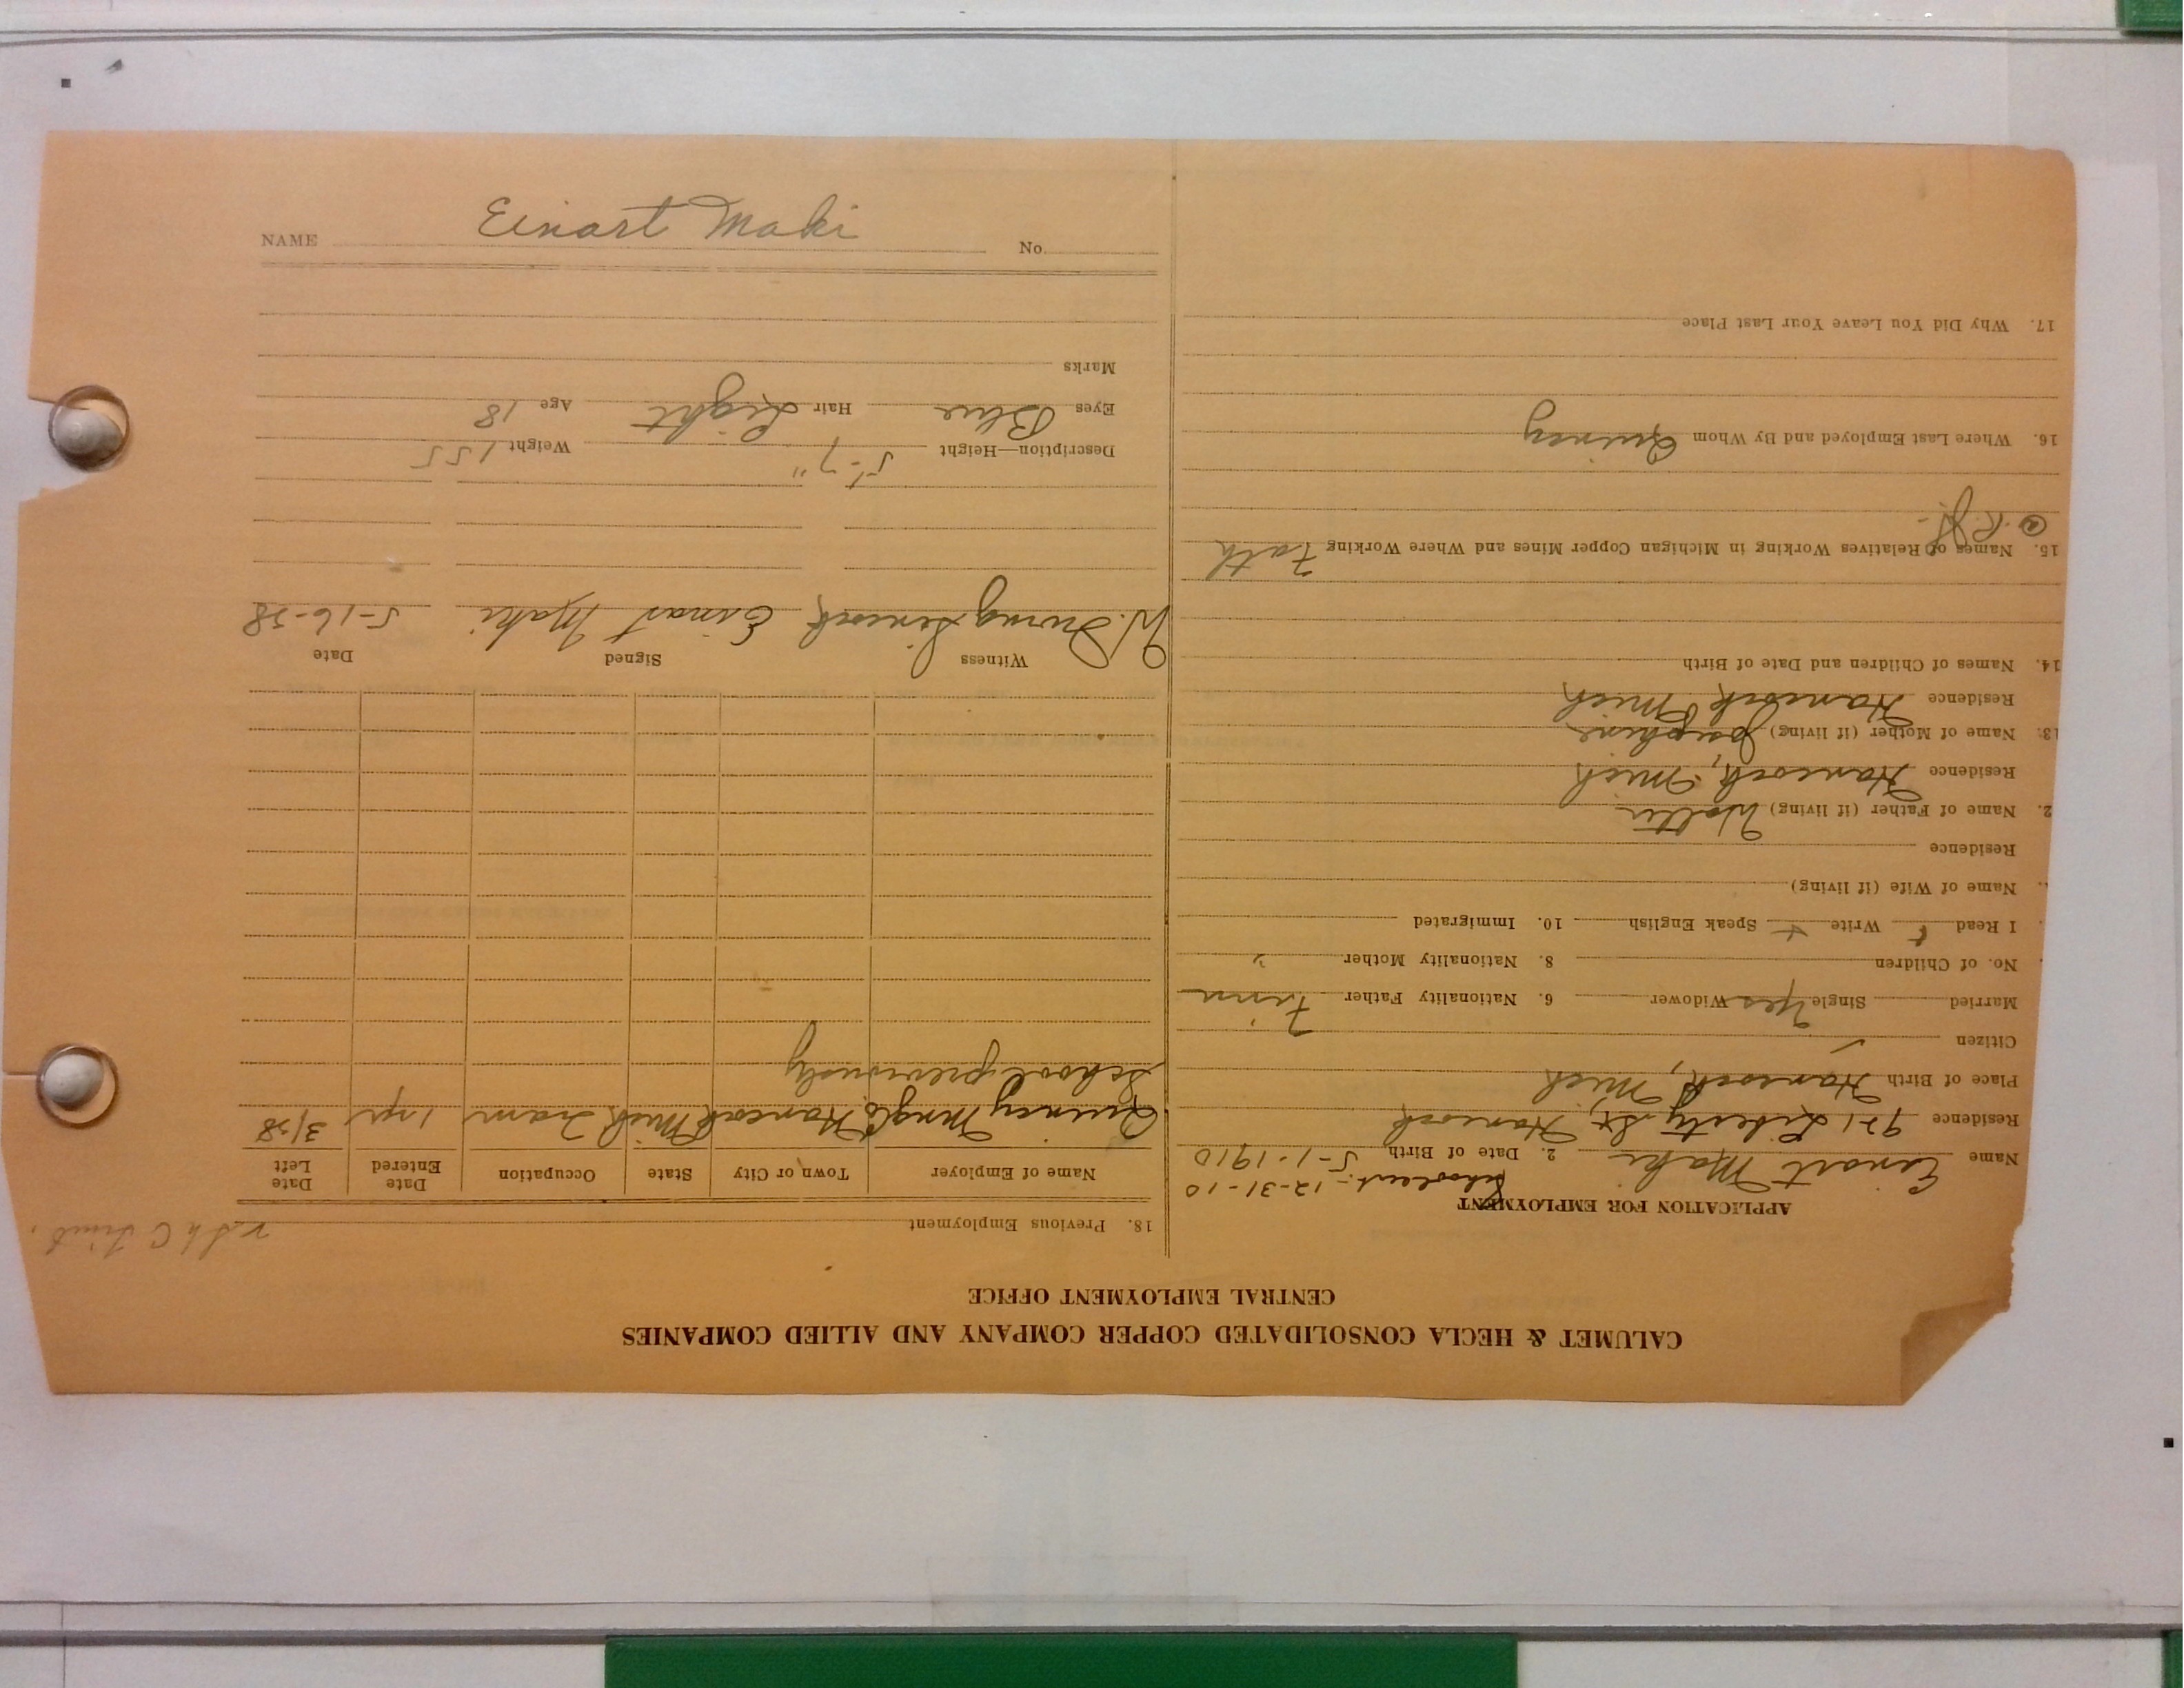 CALUMET & HECLA CONSOLIDATED COPPER COMPANY AND ALLIED COMPANIES
CENTRAL EMPLOYMENT OFFICE
APPLICATION FOR EMPLOYMENT
12-31-10
Name Einart Maki 2. Date of Birth 5-1-1910
Residence 921 Liberty St, Hancock
Place of Birth Hancock, Mich
Citizen
Married Single Yes Widower 6. Nationality Father Finn
No. of Children 8. Nationality Mother "
I Read Write Speak English 10. Immigrated
Name of Wife (if living)
Residence
2. Name of Father (if living) Walter
Residence Hancock, Mich
13. Name of Mother (if living) Josephine
Residence Hancock, Mich
14. Names of Children and Date of Birth
15. Names of Relatives Working in Michigan Copper Mines and Where Working Fath
16. Where Last Employed and By Whom Quincy
17. Why Did You Leave Your Last Place
18. Previous Employment
Name of Employer Town or City State Occupation Date Entered Date Left
Quincy Mng Co. Hancock Mich Tram 1 yr 3/28
School previously
Witness Signed Date
W. Einart Maki 5-16-28
Description—Height 5'-7" Weight 155
Eyes Blue Hair Light Age 18
Marks
NAME Einart Maki No.